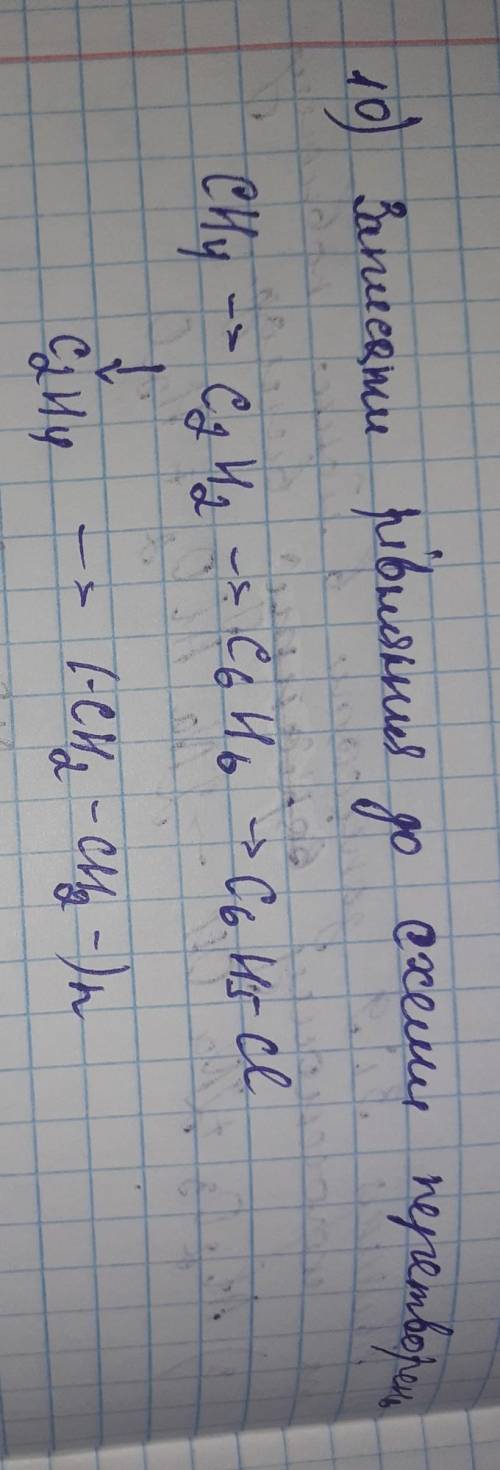 10) Записати рівняння до схеми перетворень
CH4 -> C2H2 -> C6H6 -> C6H5Cl
↓
C2H4 -> (-CH2-CH2-)n